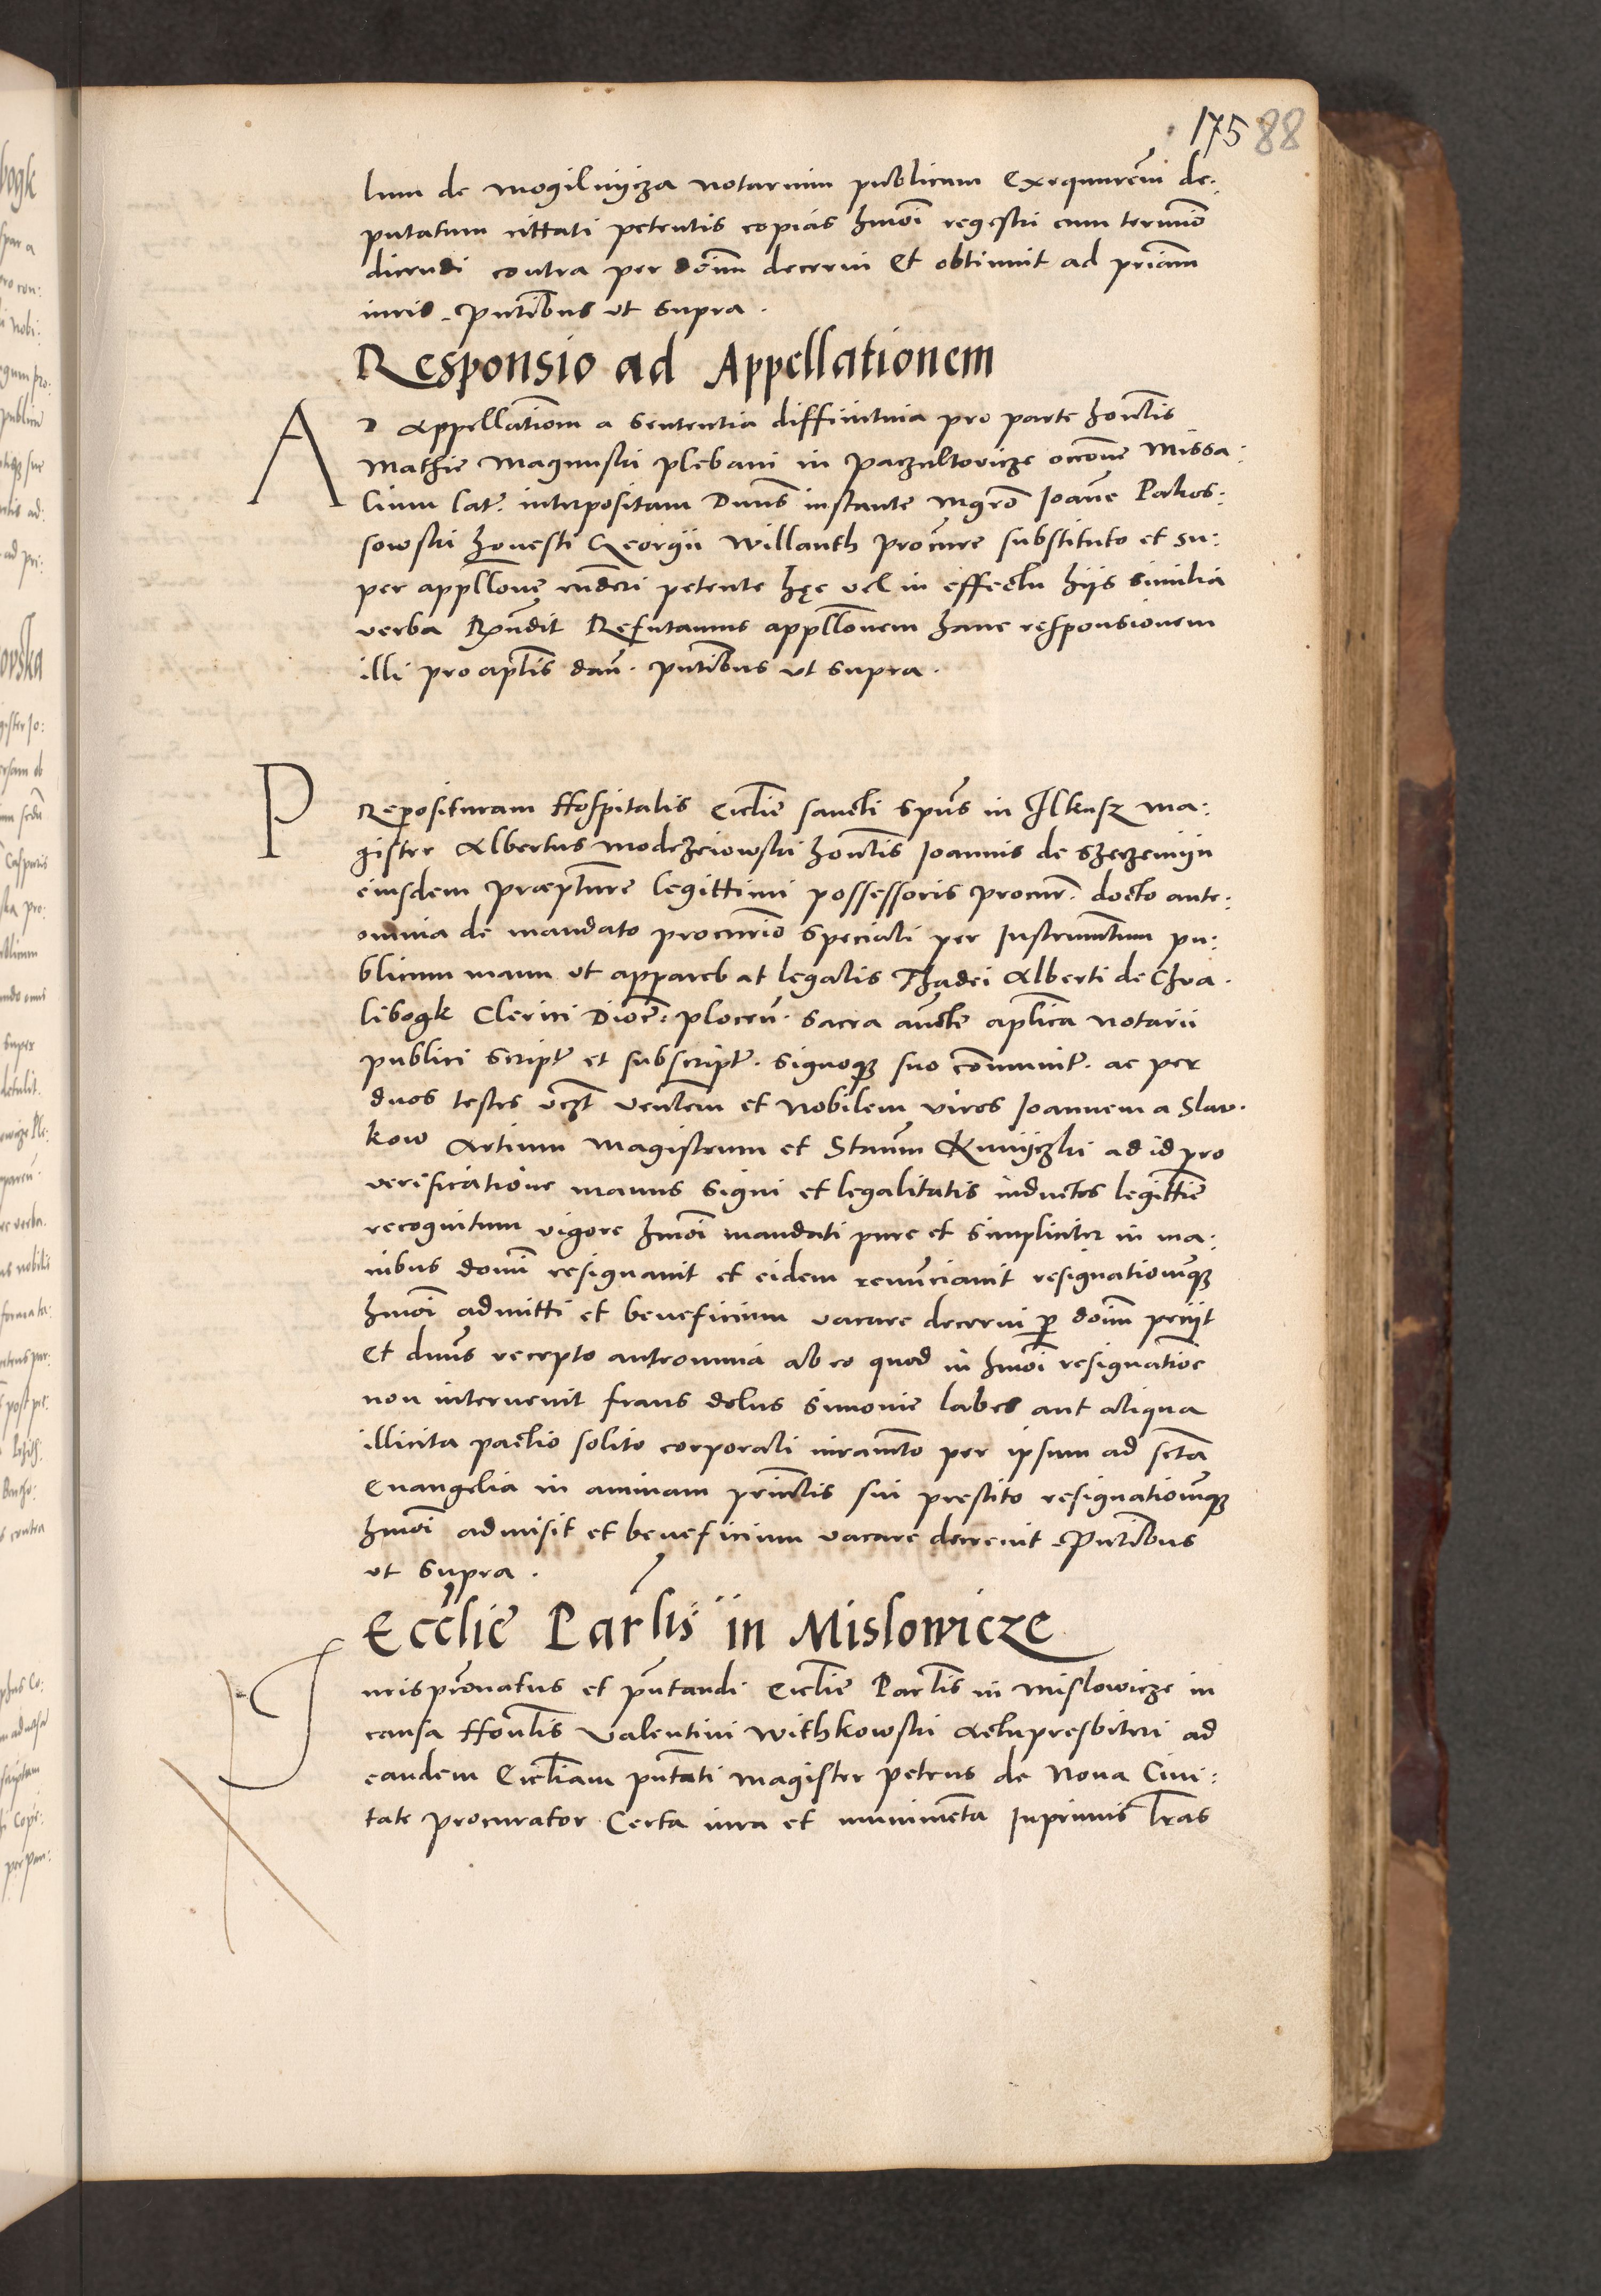 175 88
lum de Mogilnycza notarium publicum Exequutorem de:
putatum cittati petentis copias hmoi regestri cum termino
dicendi contra per dominum decerni Et obtinuit ad primam
iuris. Pntibus ut supra.
Responsio ad Appellationem
AD Appellationem a sententia diffinitiva pro parte honlis
Mathie Magnuski plebani in Paczultovicze occone Missa:
lium lat. interpositam Dnus instante mgro Ioanne Pakos:
sowski honesti Georgii Willanth procure substituto et su:
per appllone rnderi petente hęc vel in effectu hiis similia
verba Rndit Refutamus appllonem hanc responsionem
illi pro aplis dan. Pntibus ut supra.
PReposituram Hospitalis Ecclie sancti spus in Ilkusz ma:
gister Albertus Modrzeiowski honlis Ioannis de Szczemyn
eiusdem praepture legittimi possessoris procur. docto ante:
omnia de mandato procurio speciali per Instrumtum pu:
blicum manu ut apparebat legalis Thadei Alberti de Chva.
libogk Clerici Dioc. plocen. sacra aucte aplica notarii
publici script et subscript. signoq suo communit. ac per
duos testes vczt venlem et nobilem viros Ioannem a Slaw.
kow Artium Magistrum et Stanm Knyczki ad id pro
verificatione manus signi et legalitatis inductos legittime
recognitum vigore hmoi mandati pure et simpliciter in ma:
nibus domini resignavit et eidem renunciavit resignationemq
hmoi admitti et beneficium vacare decerni per dominum peciit
Et dnus recepto anteomnia ab eo quod in hmoi resignatione
non intervenit fraus dolus simonie labes aut aliqua
illicita pactio solito corporali iuramto per ipsum ad scta
Evangelia in animam princlis sui prestito resignationemq
hmoi admisit et beneficium vacare decrevit Pntibus
ut supra.
Ecclie Parlis in Mislowicze
Iurispronatus et pntandi Ecclie Parlis in Mislowicze in
causa Honlis Valentini Withkowski Actupresbiteri ad
eandem Eccliam pntati magister Petrus de Nova Civi:
tate procurator Certa iura et munimenta Inprimis lras